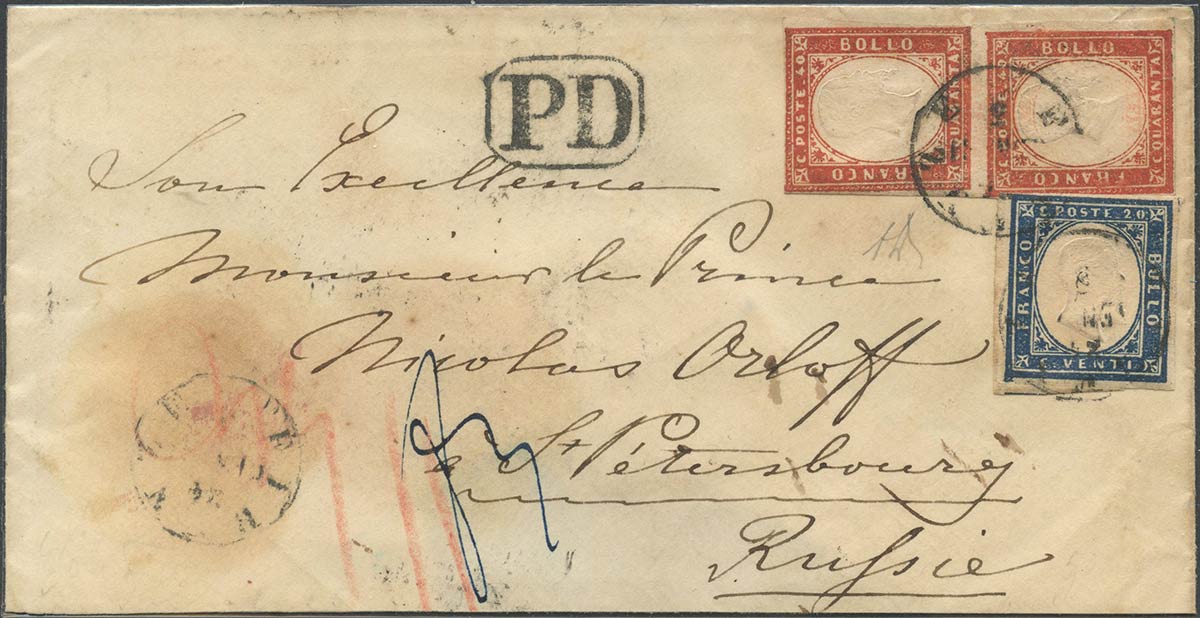 PD
BOLLO
C. POSTE. 40
C. QUARANTA
FRANCO
BOLLO
C. POSTE. 40
C. QUARANTA
FRANCO
C. POSTE. 20
FRANCO
BOLLO
C. VENTI
Son Excellence
Monsieur le Prince
Nicolas Orloff
à St Pétersbourg
Russie